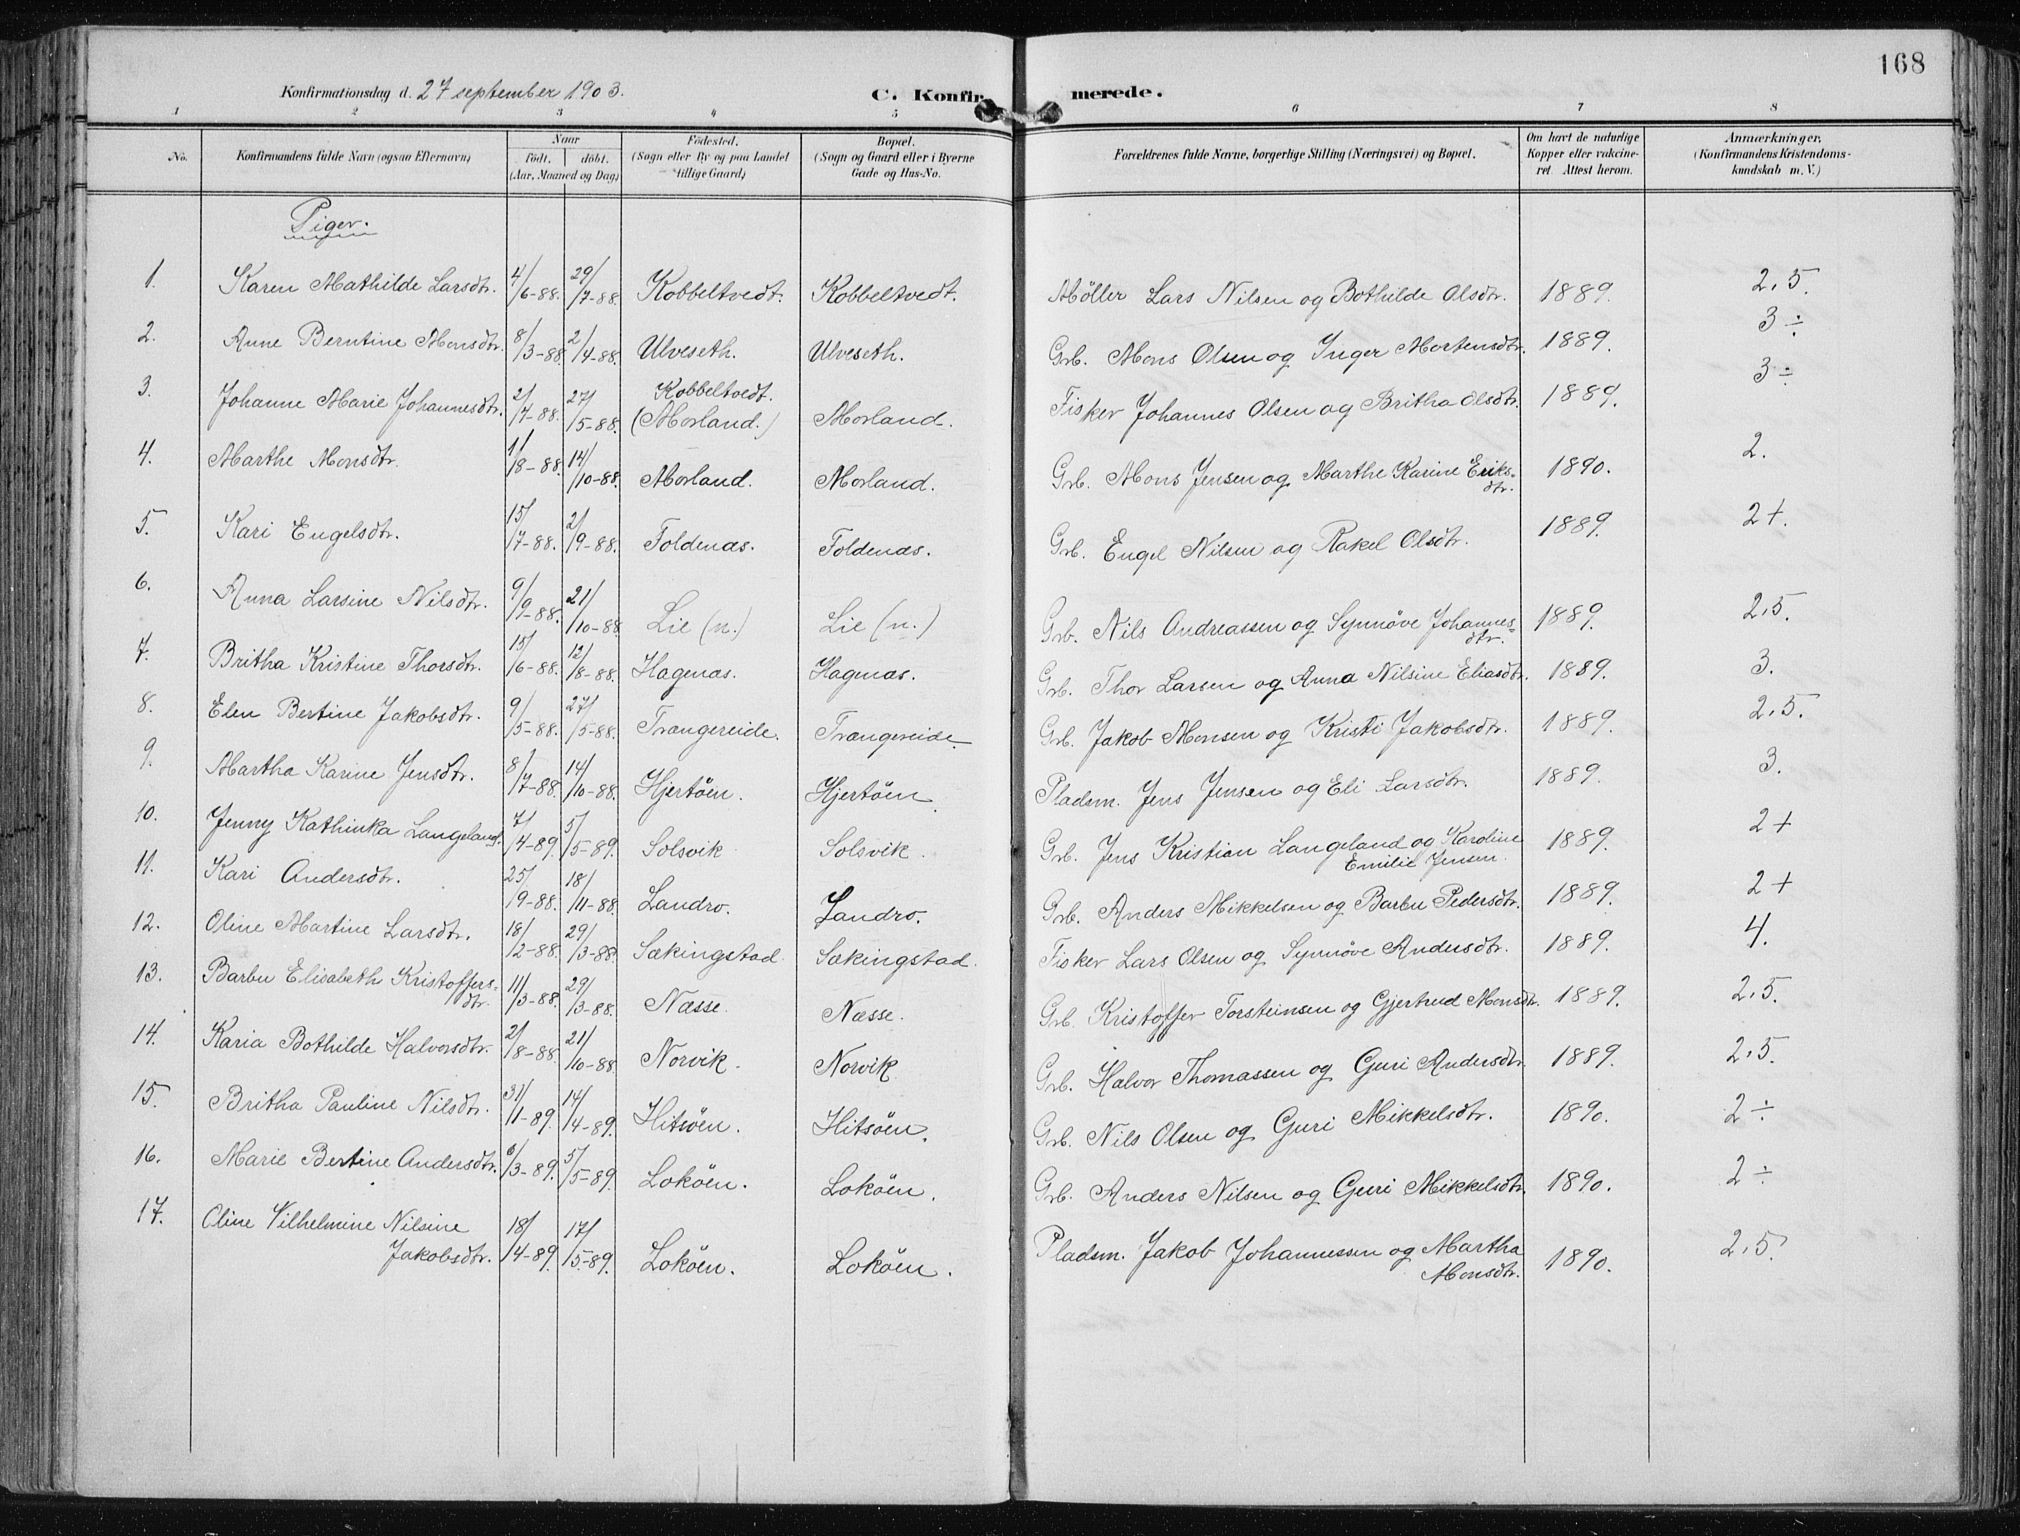 168
Konfirmationsdag d. 27 september 1903.
C. Konfirmerede.
1 2 3 4 5 6 7 8
No.
Konfirmandens fulde Navn (ogsaa Efternavn)
Naar
födt. döbt.
(Aar, Maaned og Dag)
Födested.
(Sogn eller By og paa Landet
tillige Gaard)
Bopæl.
(Sogn og Gaard eller i Byerne
Gade og Hus-No.
Forældrenes fulde Navne, borgerlige Stilling (Næringsvei) og Bopæl.
Om havt de naturlige
Kopper eller vakcine-
ret. Attest herom.
Anmærkninger.
(Konfirmandens Kristendoms-
kundskab m. V.)
Piger.
1. Karen Mathilde Larsdtr. 4/6-88. 29/7-88. Kobbeltvedt. Kobbeltvedt. Møller Lars Nilsen og Bothilde Olsdtr. 1889. 2,5.
2. Anne Berntine Monsdtr. 8/3-88. 2/4-88. Ulveseth. Ulveseth. Grb. Mons Olsen og Inger Mortensdtr. 1889. 3÷
3. Johanne Marie Johannesdtr. 2/4-88. 27/5-88. Kobbeltvedt. (Morland.) Morland. Fisker Johannes Olsen og Britha Olsdtr. 1889. 3÷
4. Marthe Monsdtr. 1/8-88. 14/10-88. Morland. Morland. Grb. Mons Jensen og Marthe Karine Eriks-
dtr. 1890. 2.
5. Kari Engelsdtr. 15/7-88. 2/9-88. Foldenæs. Foldenæs. Grb. Engel Nilsen og Rakel Olsdtr. 1889. 2+.
6. Anna Larsine Nilsdtr. 9/9-88. 21/10-88 Lie (n.) Lie (n.) Grb. Nils Andreassen og Synnøve Johannes-
dtr. 1889. 2,5.
7. Britha Kristine Thorsdtr. 15/6-88. 12/8-88. Hagenæs. Hagenæs. Grb. Thor Larsen og Anna Nilsine Eliasdtr. 1889. 3.
8. Elen Bertine Jakobsdtr. 9/5-88. 27/5-88. Trangereide. Trangereide. Grb. Jakob Monsen og Kristi Jakobsdtr. 1889. 2,5.
9. Martha Karine Jensdtr. 8/7-88. 14/10-88. Hjertøen. Hjertøen. Pladsm. Jens Jensen og Eli Larsdtr. 1889. 3.
10. Jenny Kathinka Langeland. 7/4-89. 5/5-89. Solsvik Solsvik. Grb. Jens Kristian Langeland og Karoline
Emilie Jensen. 1889. 2+
11. Kari Andersdtr. 25/9-88. 18/11-88 Landro. Landro. Grb. Anders Mikkelsen og Barbu Pedersdtr. 1889. 2+
12. Oline Martine Larsdtr. 18/2-88. 29/3-88 Sækingstad. Sækingstad. Fisker Lars Olsen og Synnøve Andersdtr. 1889. 4.
13. Barbu Elisabeth Kristoffers-
dtr. 11/3-88. 29/3-88. Næsse. Næsse. Grb. Kristoffer Torsteinsen og Gjertrud Monsdtr. 1889. 2,5.
14. Karia Bothilde Halvorsdtr. 2/8-88. 21/10-88 Norvik. Norvik. Grb. Halvor Thomassen og Guri Andersdtr. 1889. 2,5.
15. Britha Pauline Nilsdtr. 31/1-89. 14/4-89. Hitsøen. Hitsøen. Grb. Nils Olsen og Guri Mikkelsdtr. 1890. 2÷
16. Marie Bertine Andersdtr. 6/3-89. 5/5-89. Lokøen. Lokøen. Grb. Anders Nilsen og Guri Mikkelsdtr. 1890. 2÷
17. Oline Vilhelmine Nilsine
Jakobsdtr. 18/4-89. 17/5-89. Lokøen. Lokøen. Pladsm. Jakob Johannessen og Martha
Monsdtr. 1890. 2,5.